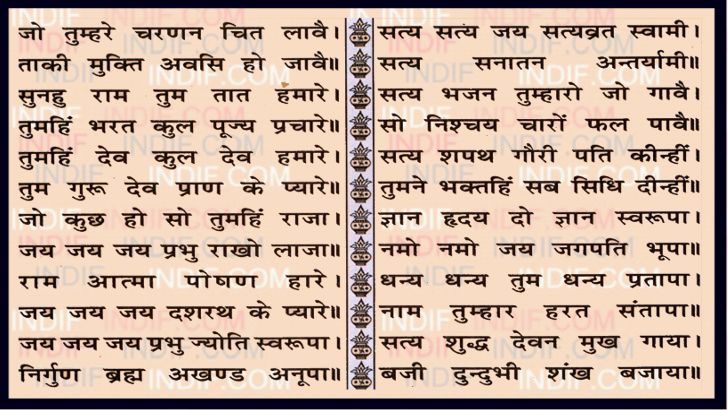 जो तुम्हरे चरणन चित लावै।
ताकी मुक्ति अवसि हो जावै॥
सुनहु राम तुम तात हमारे।
तुमहिं भरत कुल पूज्य प्रचारे॥
तुमहिं देव कुल देव हमारे।
तुम गुरू देव प्राण के प्यारे॥
जो कुछ हो सो तुमहिं राजा।
जय जय जय प्रभु राखो लाजा॥
राम आत्मा पोषण हारे।
जय जय जय दशरथ के प्यारे॥
जय जय जय प्रभु ज्योति स्वरूपा।
निर्गुण ब्रह्म अखण्ड अनूपा॥
सत्य सत्य जय सत्यव्रत स्वामी।
सत्य सनातन अन्तर्यामी॥
सत्य भजन तुम्हारो जो गावै।
सो निश्चय चारों फल पावै॥
सत्य शपथ गौरी पति कीन्हीं।
तुमने भक्तहिं सब सिधि दीन्हीं॥
ज्ञान हृदय दो ज्ञान स्वरूपा।
नमो नमो जय जगपति भूपा॥
धन्य धन्य तुम धन्य प्रतापा।
नाम तुम्हार हरत संतापा॥
सत्य शुद्ध देवन मुख गाया।
बजी दुन्दुभी शंख बजाया॥
INDIF.COM